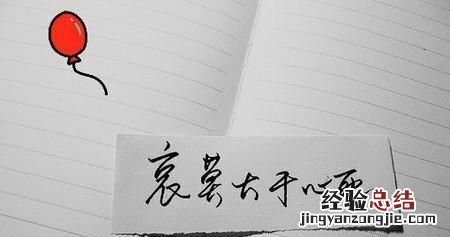 哀莫大于心死
经验总结
jingyanzongjie.com